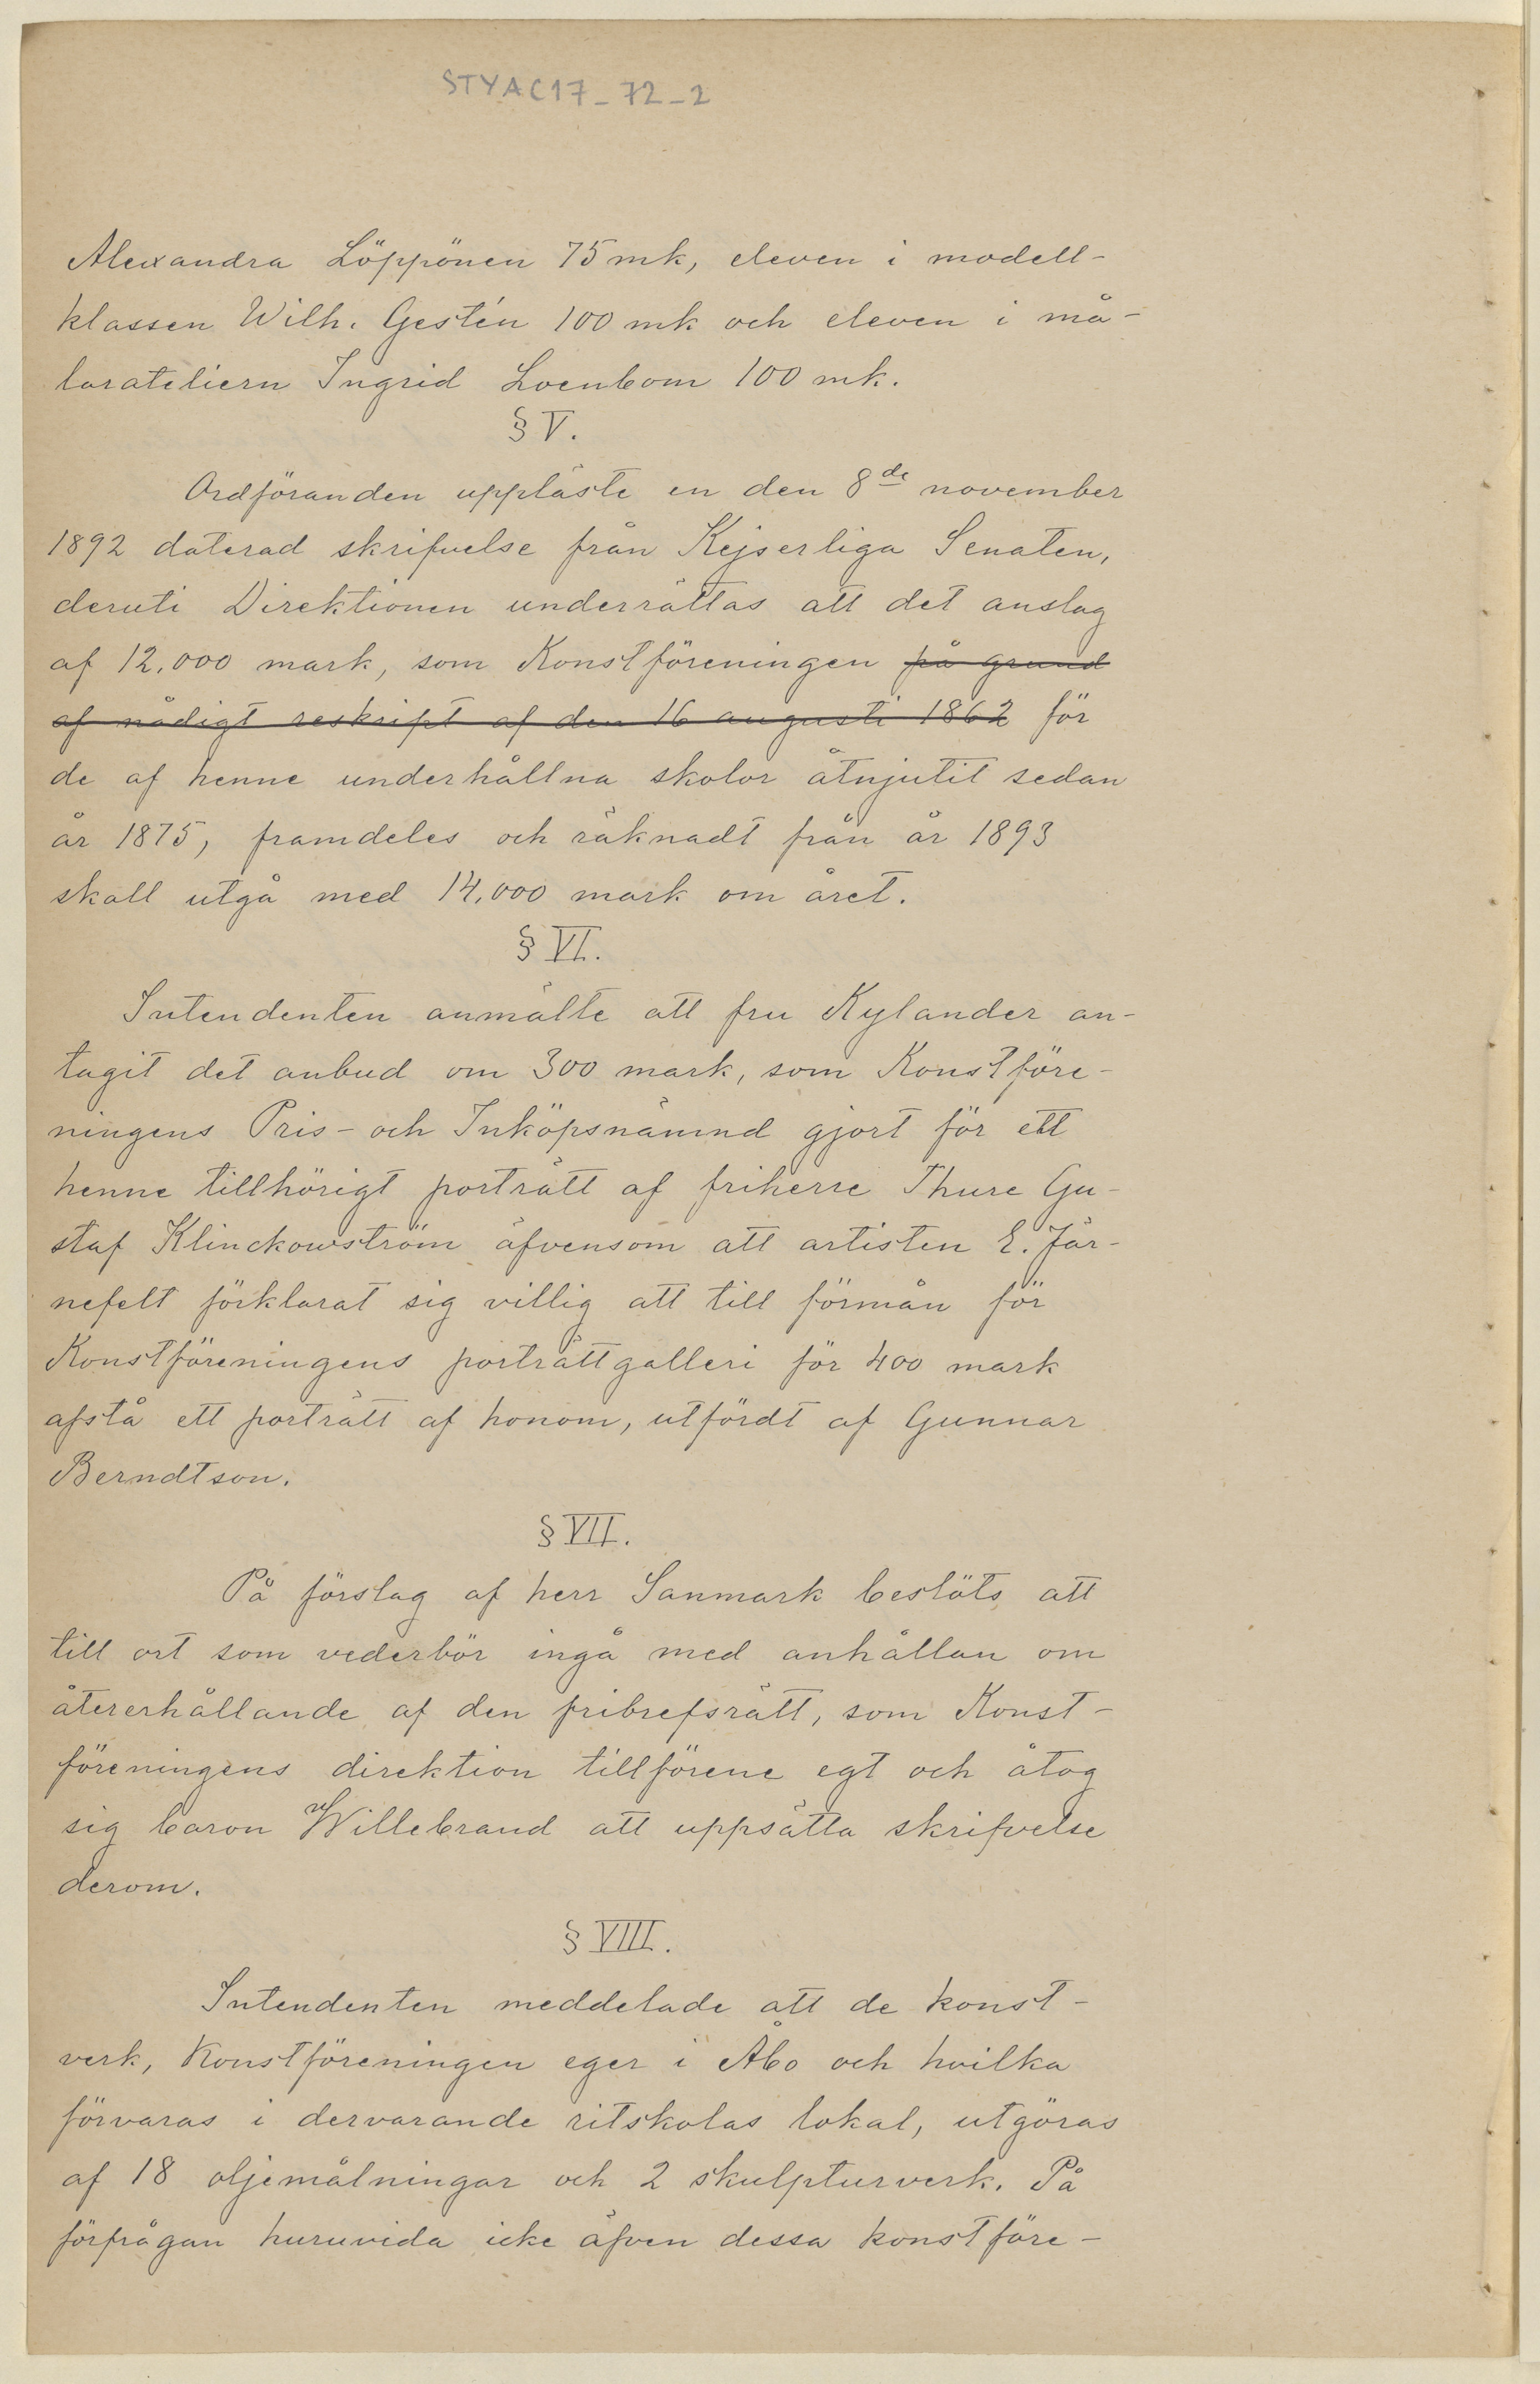 STYAC17_72_2
Alexandra Löppönen 75 mk, eleven i modell-
klassen Wilh. Gestén 100 mk och eleven i må-
larateliern Ingrid Loenbom 100 mk.
§ V.
Ordföranden uppläste en den 8de november
1892 daterad skrifvelse från Kejserliga Senaten,
deruti Direktionen underrättas att det anslag
af 12,000 mark, som Konstföreningen på grund
af nådigt reskript af den 16 augusti 1862 för
de af henne underhållna skolor åtnjutit sedan
år 1875, framdeles och räknadt från år 1893
skall utgå med 14,000 mark om året.
§ VI.
Intendenten anmälte att fru Kylander an-
tagit det anbud om 300 mark, som Konstföre-
ningens Pris- och Inköpsnämnd gjort för ett
henne tillhörigt porträtt af friherre Thure Gu-
staf Klinckowström äfvensom att artisten E. Jär-
nefelt förklarat sig villig att till förmån för
Konstföreningens porträttgalleri för 400 mark
afstå ett porträtt af honom, utfördt af Gunnar
Berndtson.
§ VII.
På förslag af herr Sanmark beslöts att
till ort som vederbör ingå med anhållan om
återerhållande af den fribrefsrätt, som Konst-
föreningens direktion tillförene egt och åtog
sig baron Willebrand att uppsätta skrifvelse
derom.
§ VIII.
Intendenten meddelade att de konst-
verk, Konstföreningen eger i Åbo och hvilka
förvaras i dervarande ritskolas lokal, utgöras
af 18 oljemålningar och 2 skulpturverk. På
förfrågan huruvida icke äfven dessa konstföre-